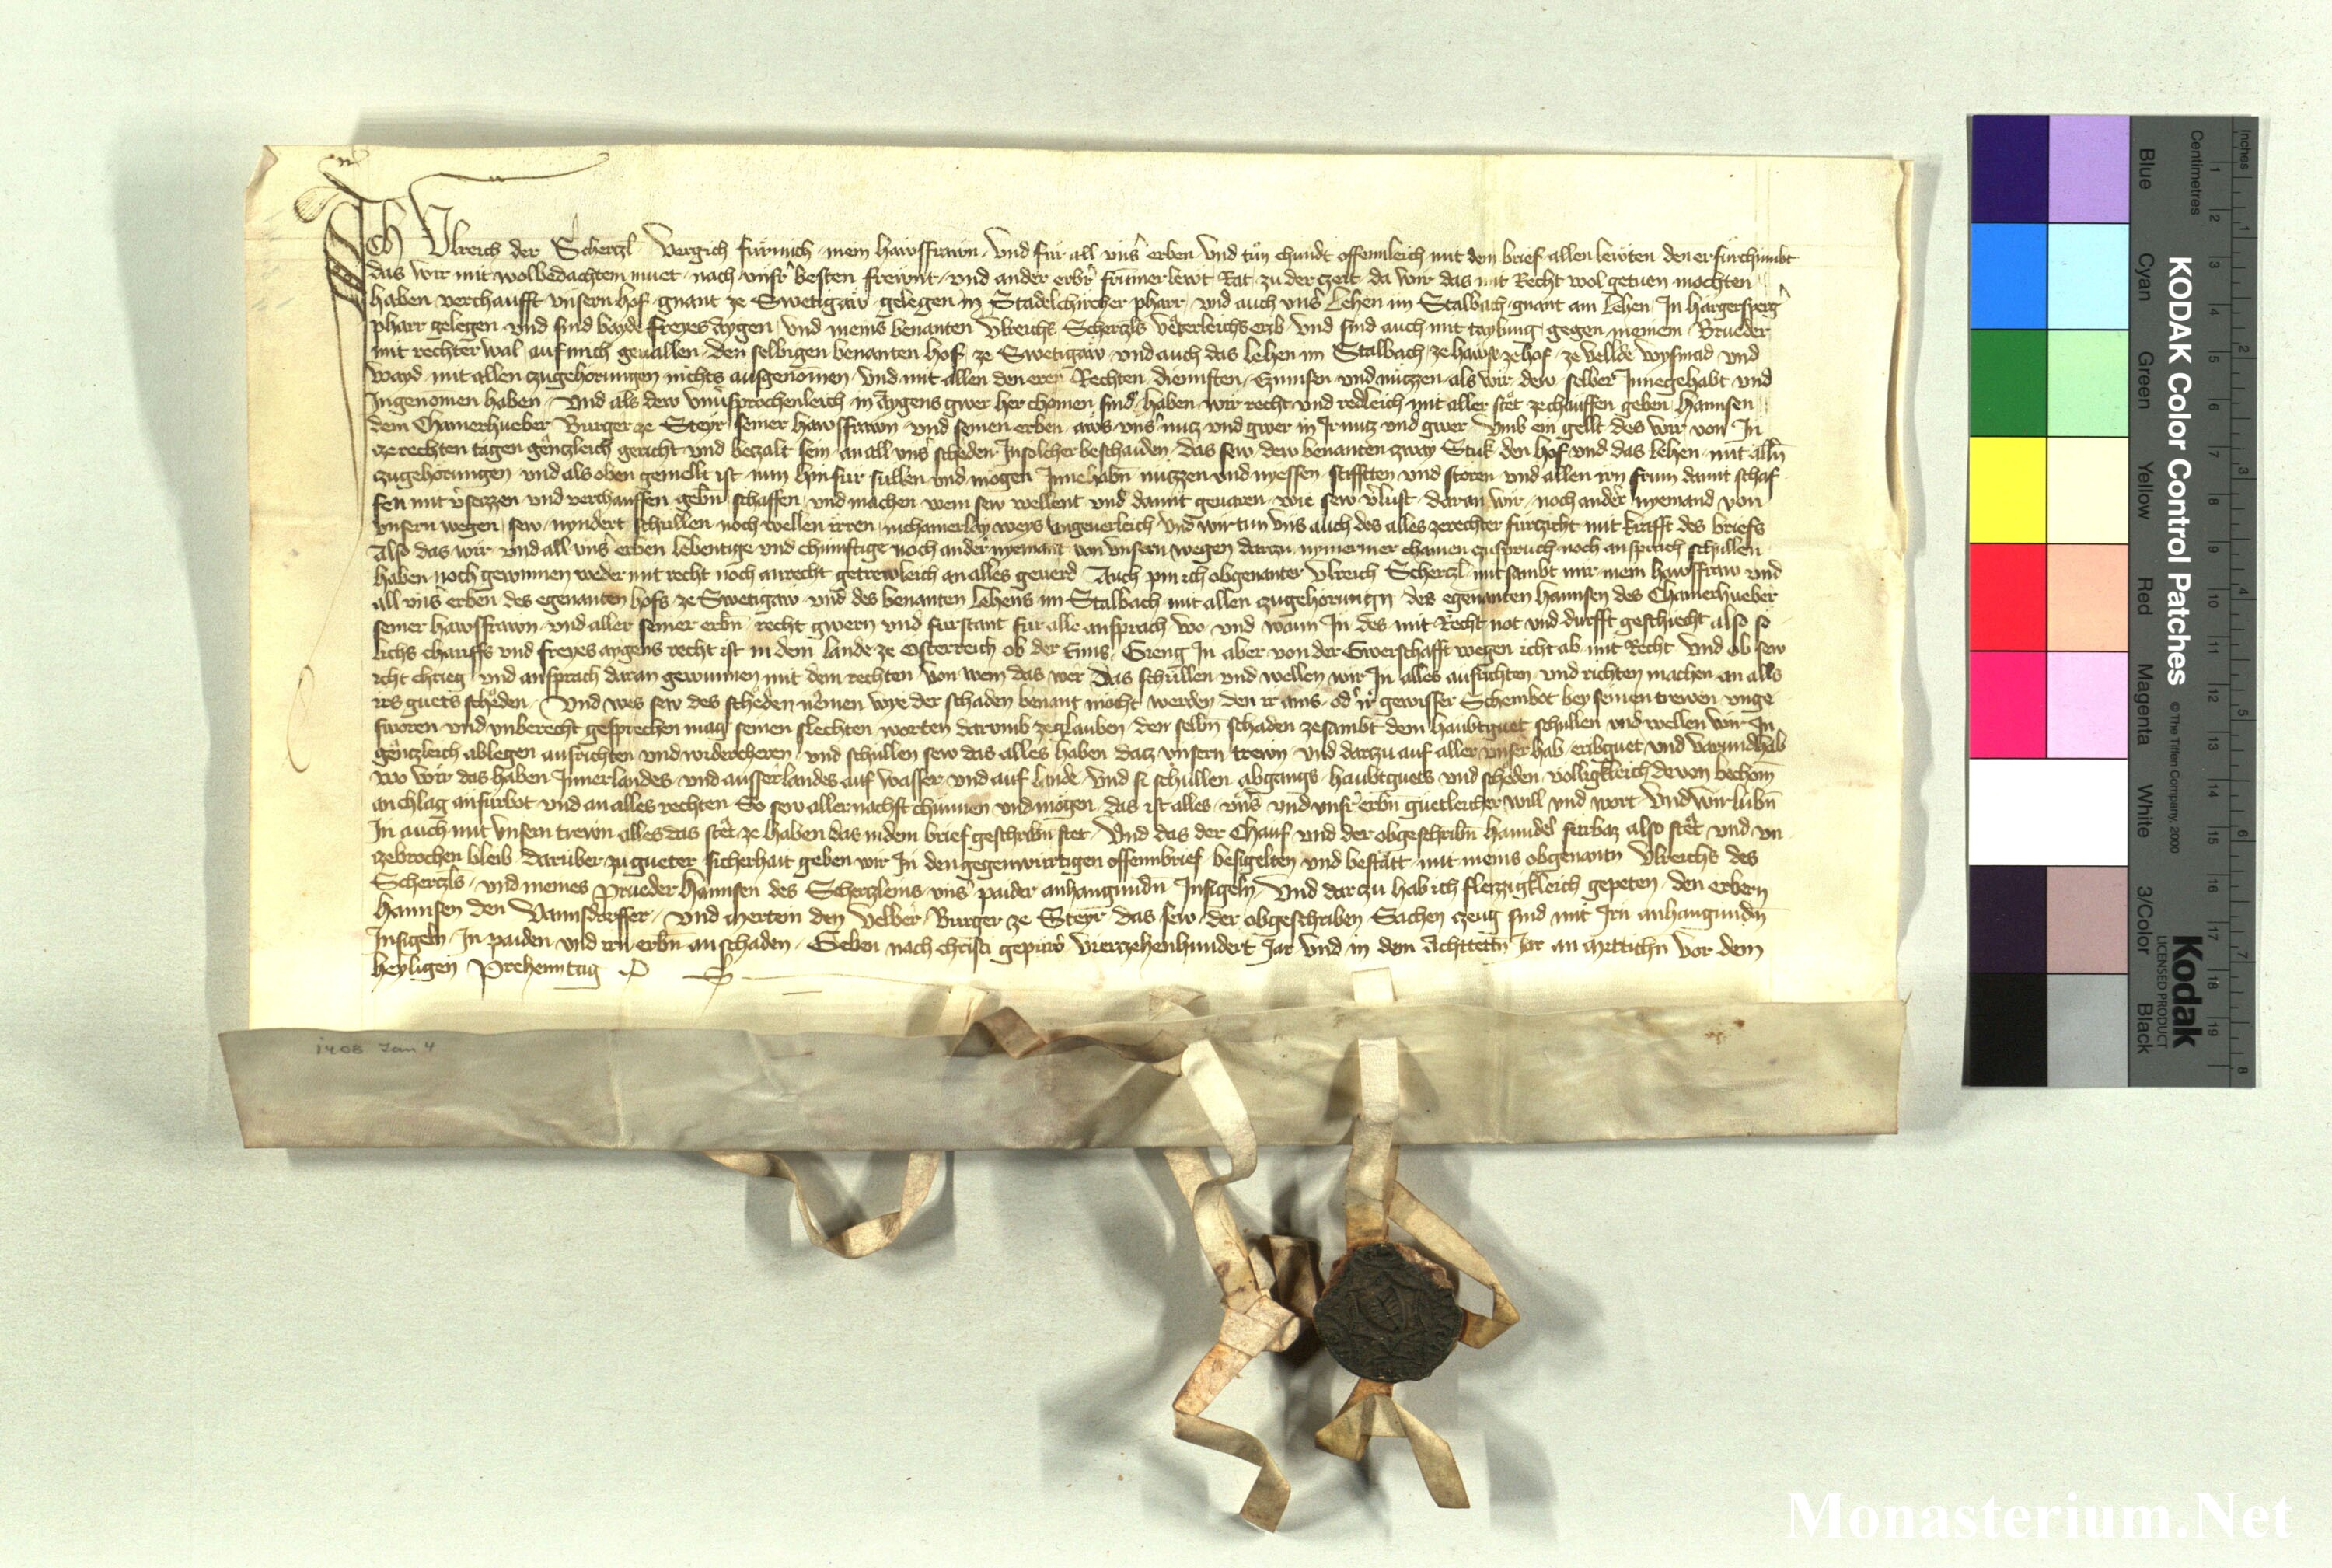 Ich Ulreich der Scherczl vergich fürmich mein hawsfrawn und für all unser erben und tün chundt offennleich mit dem brief allen lewten den er fürchumbt
das wir mit wolbedachtem muet nach unsr besten frewnt und ander erbr frumer lewt Rat zu der czeit da wir das mit Recht wol getuen mochten
haben verchaufft unsern hof gnant ze Swetigaw gelegen in Stadelchircher pharr und auch uns Lehen im Stalbach gnant am Lehen In hargersperg
pharr gelegen und sind bayde freyes aygen und meins benanten Ulreichs Scherczls veterleichs erib und sind auch mit taylung gegen meinem Brueder
mit rechter wal auf mich geuallen den selbigen benanten hof ze Swetigaw und auch das Lehen im Stalbach ze haws ze hof ze vellde wysmad und
wayd mit allen czugehorungen nichts ausgenomen und mit allen den eren Rechten diennsten Czinnsen und nuczen als wir dew selber Innegehabt und
Ingenomen haben und als dew unuersprochenleich in aygens gwer her chomen sind haben wir recht und redleich mit aller stet ze chauffen geben hannsen
dem Chamerhueber Burger ze Steyr seiner hawsfrawn und seinen erben aws uns nucz und gwer in Ir nucz und gwer umb ein gellt des wir von In
ze rechten tagen genczleich gericht und beczalt sein an all uns scheden In solcher beschaiden das sew dew benanten zway Stuk den hof und das Lehen mit alln
czugehorungen und als oben gemellt ist nun hinfür süllen und mogen Innehabn nuczen und nyessen stifften und storen und allen irn frum damit schaf
fen mit verseczen und verchauffen gebn schaffen und machen wem sew wellent und damit geuaren wie sew verlust daran wir noch ander nyemand von
unsern wegen sew nyndert schullen noch wellen irren in chainerlay weys ungeuerleich und wir tun uns auch des alles ze rechter furczicht mit krafft des briefs
Also das wir und all uns erben lebentige und chunftige noch ander nyemant von unsern wegen darzu nymermer chainen zuspruch noch ansprach schullen
haben noch gewinnen weder mit recht noch an recht getrewleich an alles geuerd Auch pin ich obgenanter Ulreich Scherczl mitsambt mir mein hawsfraw und
all uns erben des egenanten hofs ze Swetigaw und des benanten Lehens im Stalbach mit allen czugehorungn des egenanten hannsen des Chamerhueber
seiner hawsfrawn und aller seiner erbn recht gwern und fürstant für alle ansprach wo und wann In des mit Recht not und durfft geschiecht also so
lichs chauffs und freyes aygens recht ist in dem Lande ze Osterreich ob der Enns Gieng In aber von der Gwerschafft wegen icht ab mit Recht und ob sew
icht chrieg und ansprach daran gewunnen mit dem rechten von wem das wer das schullen und wellen wir In alles ausrichten und richtig machen an alls
irs guets scheden und wes sew des scheden nemen wye der schaden benant mocht werden den ir ains oder ir gewisser Scheinbot bey seinen trewen unge
sworen und unberecht gesprechen mag seinen slechten worten darumb ze glauben den selbn schaden zesambt dem haubtguet schullen und wellen wir In
genczleich ablegen ausrichten und widercheren und schullen sew das alles haben dacz unsern trewn und darczu auf aller unsr hab eribguet und varundhab
wo wir das haben Innerlandes und ausserlandes auf wasser und auf Lande und si schullen abgangs haubtguets und scheden volligkleich dauon bechom
an chlag an fürbot und an alles rechten So sew allernachst chunnen und mogen das ist alles uns und unsr erbn guetleicher will und wort und wir lubn
In auch mit unsern trewn alles das stet ze haben das in dem brief geschribn stet Und das der Chauf und der obgeschribn hanndel fürbaz also stet und un
zebrochen bleib darüber zu gueter sicherhait geben wir In den gegenwürtigen offennbrief besigelten und bestatt mit meins obgenantn Ulreichs des
Scherczls und meines Prueder hannsen des Scherczleins uns paider anhangundn Insigeln und darzu hab ich fleizzigkleich gepeten den erbern
hannsen den Vannsdorffer und Mertein den Velber Burger ze Steyr das sew der obgeschriben Sachen czeug sind mit Irn anhangundn
Insigeln In paiden und irn erbn an schaden Geben nach christi gepurd vierczehenhundert Jar und in dem Achttettn Jar an Mittichn vor dem
heyligen Prehenntag
1408 Jan 4
KODAK Color Control Patches
© The Tiffen Company, 2000
Kodak
LICENSED PRODUCT
Blue Cyan Green Yellow Red Magenta White 3/Color Black
Inches
1 2 3 4 5 6 7 8
Centimetres
1 2 3 4 5 6 7 8 9 10 11 12 13 14 15 16 17 18 19
Monasterium.Net